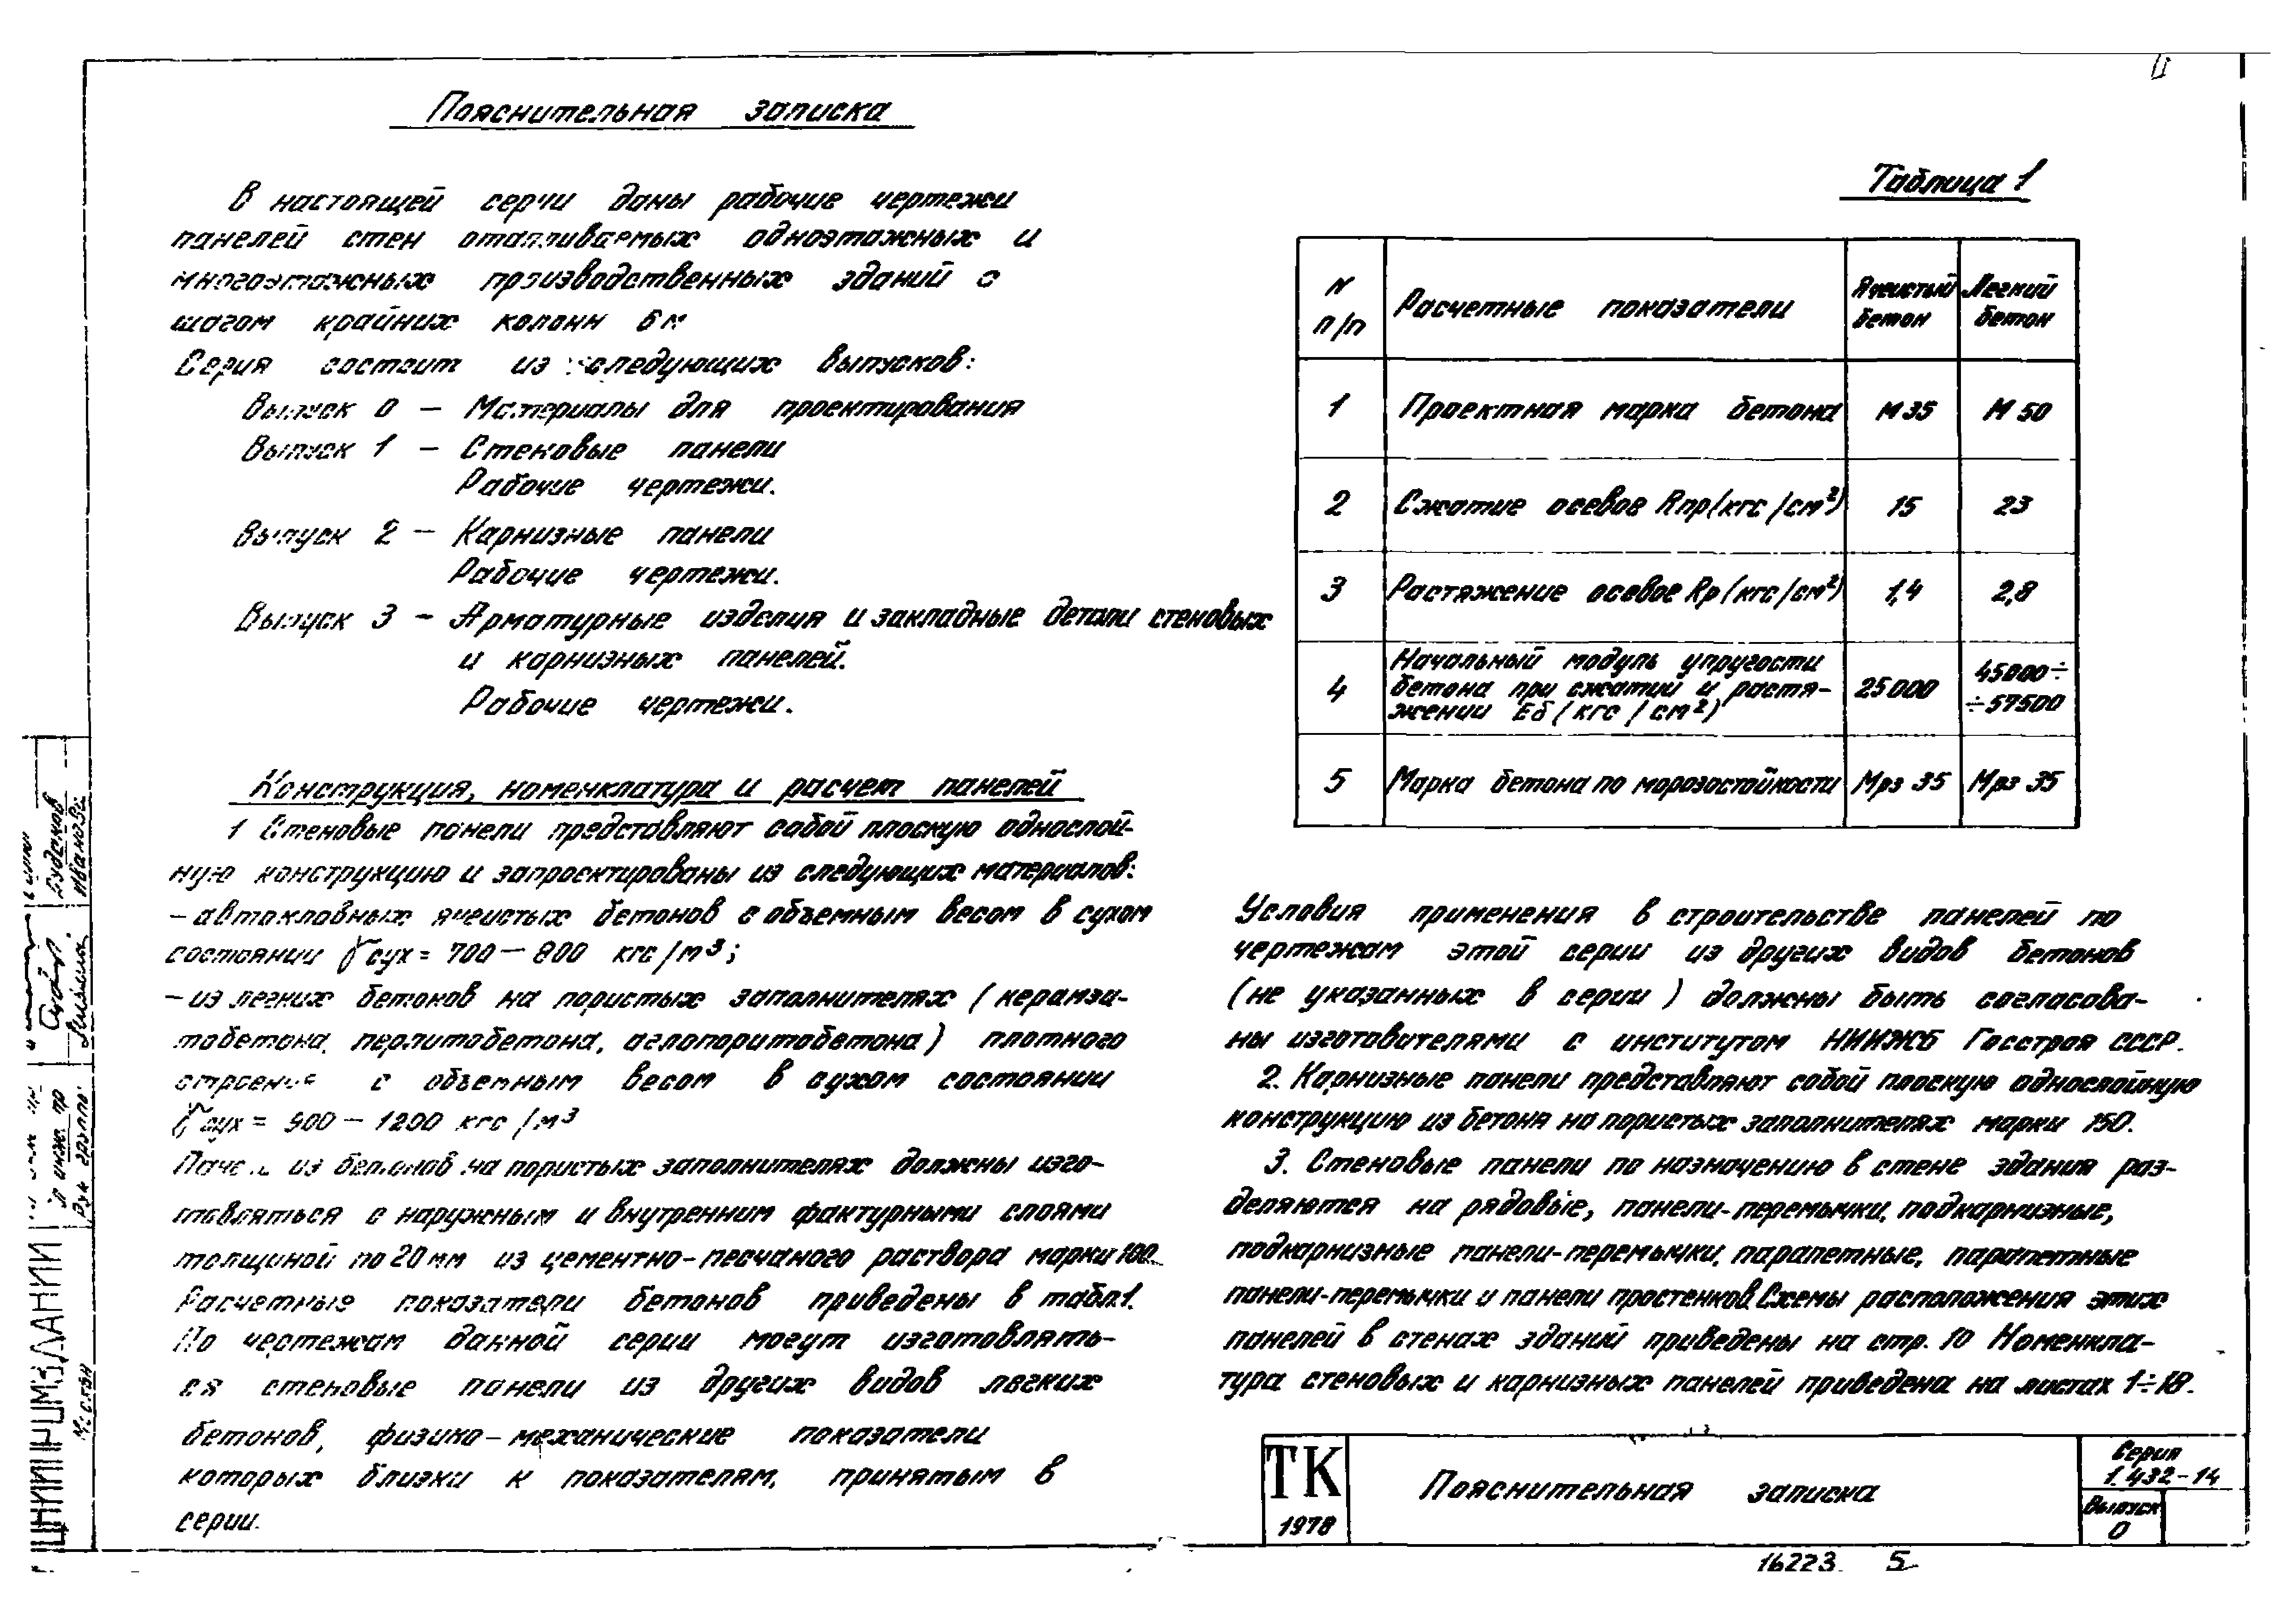 Пояснительная записка
В настоящей серии даны рабочие чертежи
панелей стен отапливаемых одноэтажных и
многоэтажных производственных зданий с
шагом крайних колонн 6 м
Серия состоит из следующих выпусков:
Выпуск 0 — Материалы для проектирования
Выпуск 1 — Стеновые панели
Рабочие чертежи.
Выпуск 2 — Карнизные панели
Рабочие чертежи.
Выпуск 3 — Арматурные изделия и закладные детали стеновых
и карнизных панелей.
Рабочие чертежи.
Конструкция, номенклатура и расчет панелей
1 Стеновые панели представляют собой плоскую однослой-
ную конструкцию и запроектированы из следующих материалов:
— автоклавных ячеистых бетонов с объемным весом в сухом
состоянии γсух = 700 — 800 кгс/м³;
— из легких бетонов на пористых заполнителях (керамзи-
тобетона, перлитобетона, аглопоритобетона) плотного
строения с объемным весом в сухом состоянии
γсух = 900 — 1200 кгс/м³
из бетонов на пористых заполнителях должны изго-
товляться с наружным и внутренним фактурными слоями
толщиной по 20 мм из цементно-песчаного раствора марки 100.
Расчетные показатели бетонов приведены в табл.1.
По чертежам данной серии могут изготовлять-
ся стеновые панели из других видов легких
бетонов, физико-механические показатели
которых близки к показателям, принятым в
серии.
Таблица 1
N п/п Расчетные показатели Ячеистый бетон Легкий бетон
1 Проектная марка бетона М 35 М 50
2 Сжатие осевое Rпр (кгс/см²) 15 23
3 Растяжение осевое Rр (кгс/см²) 1,4 2,8
4 Начальный модуль упругости бетона при сжатии и растя-жении Еб (кгс/см²) 25000 45000÷ ÷57500
5 Марка бетона по морозостойкости Мрз 35 Мрз 35
Условия применения в строительстве панелей по
чертежам этой серии из других видов бетонов
(не указанных в серии) должны быть согласова-
ны изготовителями с институтом НИИЖБ Госстроя СССР.
2. Карнизные панели представляют собой плоскую однослойную
конструкцию из бетона на пористых заполнителях марки 150.
3. Стеновые панели по назначению в стене здания раз-
деляются на рядовые, панели-перемычки, подкарнизные,
подкарнизные панели-перемычки, парапетные, парапетные
панели-перемычки и панели простенков. Схемы расположения этих
панелей в стенах зданий приведены на стр. 10 Номенкла-
тура стеновых и карнизных панелей приведена на листах 1÷18.
ТК
1978
Пояснительная записка
Серия
1.432-14
Выпуск
0
16223 5
ЦНИИПРОМЗДАНИЙ